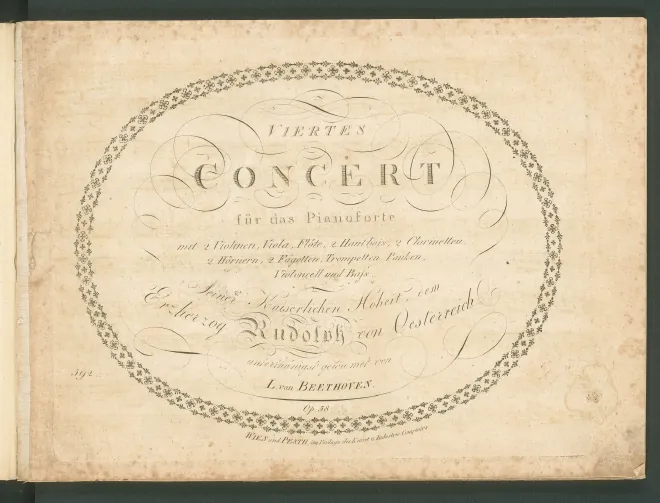 VIERTES
CONCERT
für das Pianoforte
mit 2 Violinen, Viola, Flöte, 2 Hautbois, 2 Clarinetten,
2 Hörnern, 2 Fagotten, Trompetten, Pauken,
Violoncell und Bass
Seiner Kaiserlichen Hoheit dem
Erzherzog Rudolph von Oesterreich
unterthänigst gewidmet von
L. van BEETHOVEN.
Op. 58
WIEN und PESTH, im Verlage des Kunst u Industrie Comptoirs
592